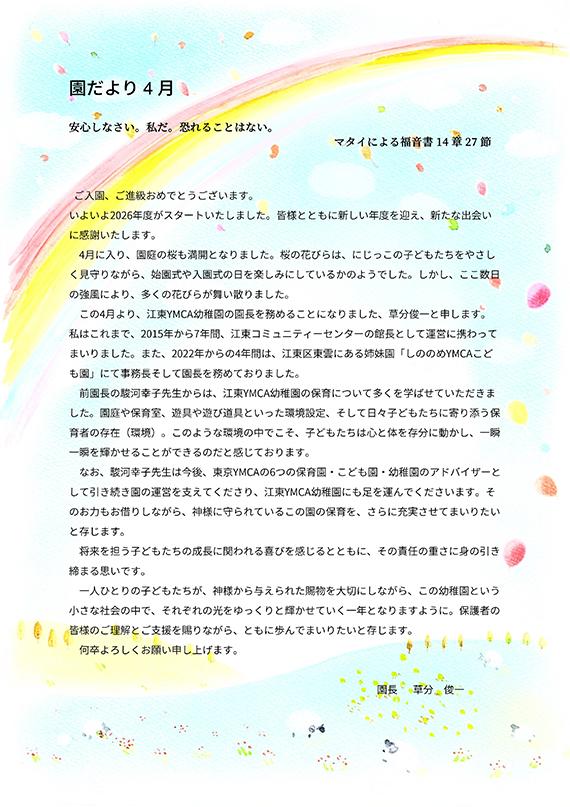 園だより 4 月
安心しなさい。私だ。恐れることはない。
マタイによる福音書 14 章 27 節
ご入園、ご進級おめでとうございます。
いよいよ2026年度がスタートいたしました。皆様とともに新しい年度を迎え、新たな出会い
に感謝いたします。
4月に入り、園庭の桜も満開となりました。桜の花びらは、にじっこの子どもたちをやさし
く見守りながら、始園式や入園式の日を楽しみにしているかのようでした。しかし、ここ数日
の強風により、多くの花びらが舞い散りました。
この4月より、江東YMCA幼稚園の園長を務めることになりました、草分俊一と申します。
私はこれまで、2015年から7年間、江東コミュニティーセンターの館長として運営に携わって
まいりました。また、2022年からの4年間は、江東区東雲にある姉妹園「しののめYMCAこど
も園」にて事務長そして園長を務めておりました。
前園長の駿河幸子先生からは、江東YMCA幼稚園の保育について多くを学ばせていただきま
した。園庭や保育室、遊具や遊び道具といった環境設定、そして日々子どもたちに寄り添う保
育者の存在（環境）。このような環境の中でこそ、子どもたちは心と体を存分に動かし、一瞬
一瞬を輝かせることができるのだと感じております。
なお、駿河幸子先生は今後、東京YMCAの6つの保育園・こども園・幼稚園のアドバイザーと
して引き続き園の運営を支えてくださり、江東YMCA幼稚園にも足を運んでくださいます。そ
のお力もお借りしながら、神様に守られているこの園の保育を、さらに充実させてまいりたい
と存じます。
将来を担う子どもたちの成長に関われる喜びを感じるとともに、その責任の重さに身の引き
締まる思いです。
一人ひとりの子どもたちが、神様から与えられた賜物を大切にしながら、この幼稚園という
小さな社会の中で、それぞれの光をゆっくりと輝かせていく一年となりますように。保護者の
皆様のご理解とご支援を賜りながら、ともに歩んでまいりたいと存じます。
何卒よろしくお願い申し上げます。
園長　草分　俊一